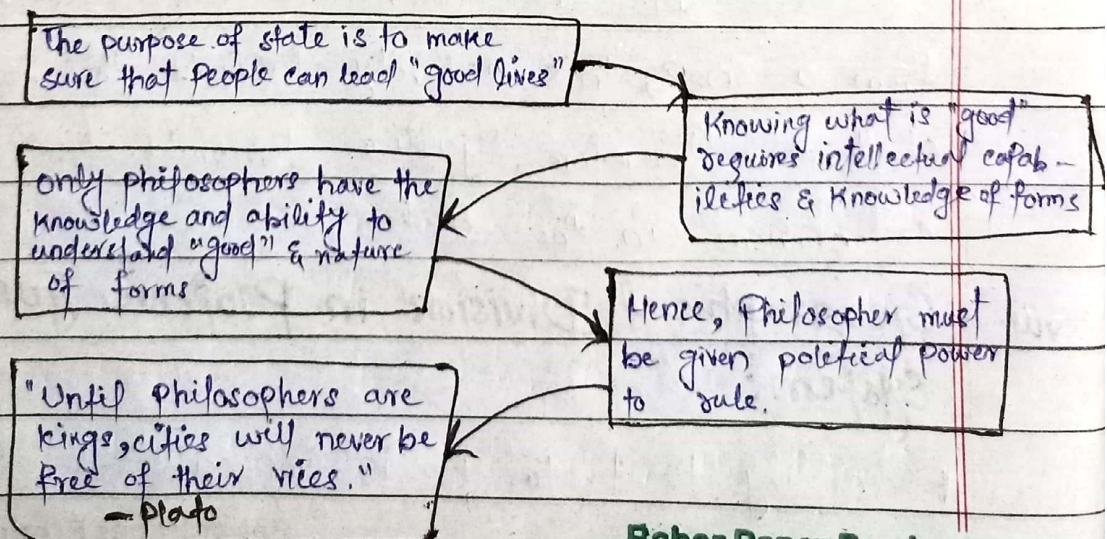 The purpose of state is to make
sure that People can lead "good lives"
Knowing what is "good"
requires intellectual capab-
ilities & Knowledge of forms
only philosophers have the
knowledge and ability to
understand "good" & nature
of forms
Hence, Philosopher must
be given political power
to rule.
"Until Philosophers are
kings, cities will never be
free of their vices."
- Plato